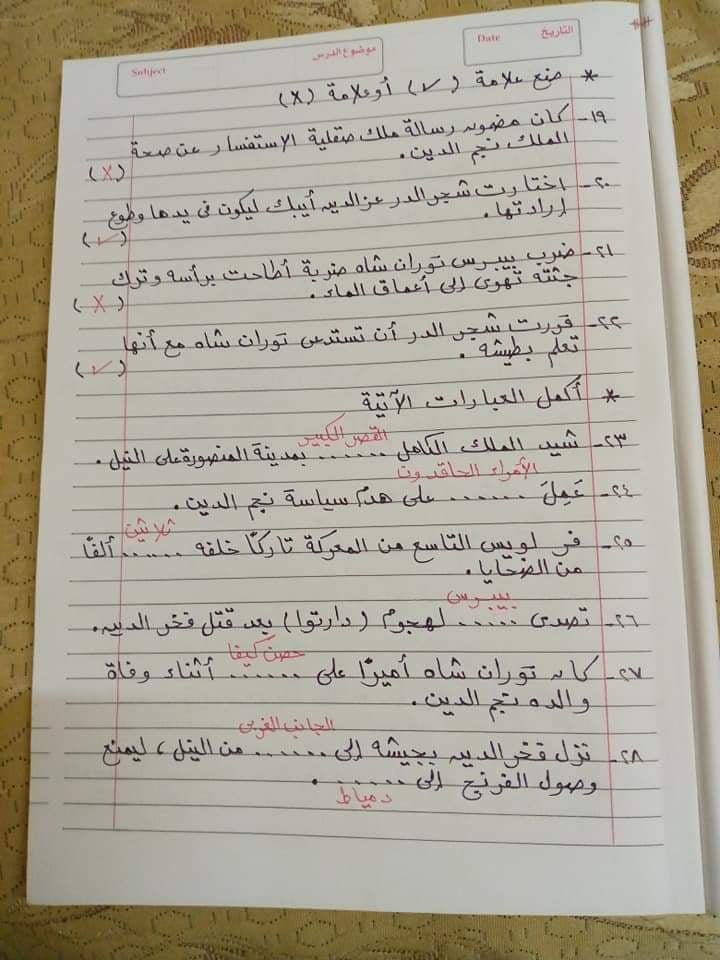 التاريخ
Date
موضوع الدرس
Subject
* ضع علامة (✓) أو علامة (X)
١٩- كان مضمون رسالة ملك صقلية الإستفسار عن صحة
الملك نجم الدين. (X)
٢٠- اختارت شجر الدر عز الدين أيبك ليكون فى يدها وطوع
إرادتها. (✓)
٢١- ضرب بيبرس توران شاه ضربة أطاحت برأسه وترك
جثته تهوى إلى أعماق الماء. (X)
٢٢- قررت شجر الدر أن تستدعى توران شاه مع أنها
تعلم بطيشه. (✓)
* أكمل العبارات الآتية
القصر الكبير
٢٣- شيد الملك الكامل ...... بمدينة المنصورة على النيل.
الأمراء الحاقدون
٢٤- عَمِلَ ...... على هدم سياسة نجم الدين.
ثلاثين
٢٥- فر لويس التاسع من المعركة تاركًا خلفه ...... ألفًا
من الضحايا.
بيبرس
٢٦- تصدى ...... لهجوم (دارتوا) بعد قتل فخر الدين.
حصن كيفا
٢٧- كان توران شاه أميرًا على ...... أثناء وفاة
والده نجم الدين.
الجانب الغربى
٢٨- نزل فخر الدين بجيشه إلى ...... من النيل، ليمنع
وصول الفرنج إلى ...... .
دمياط